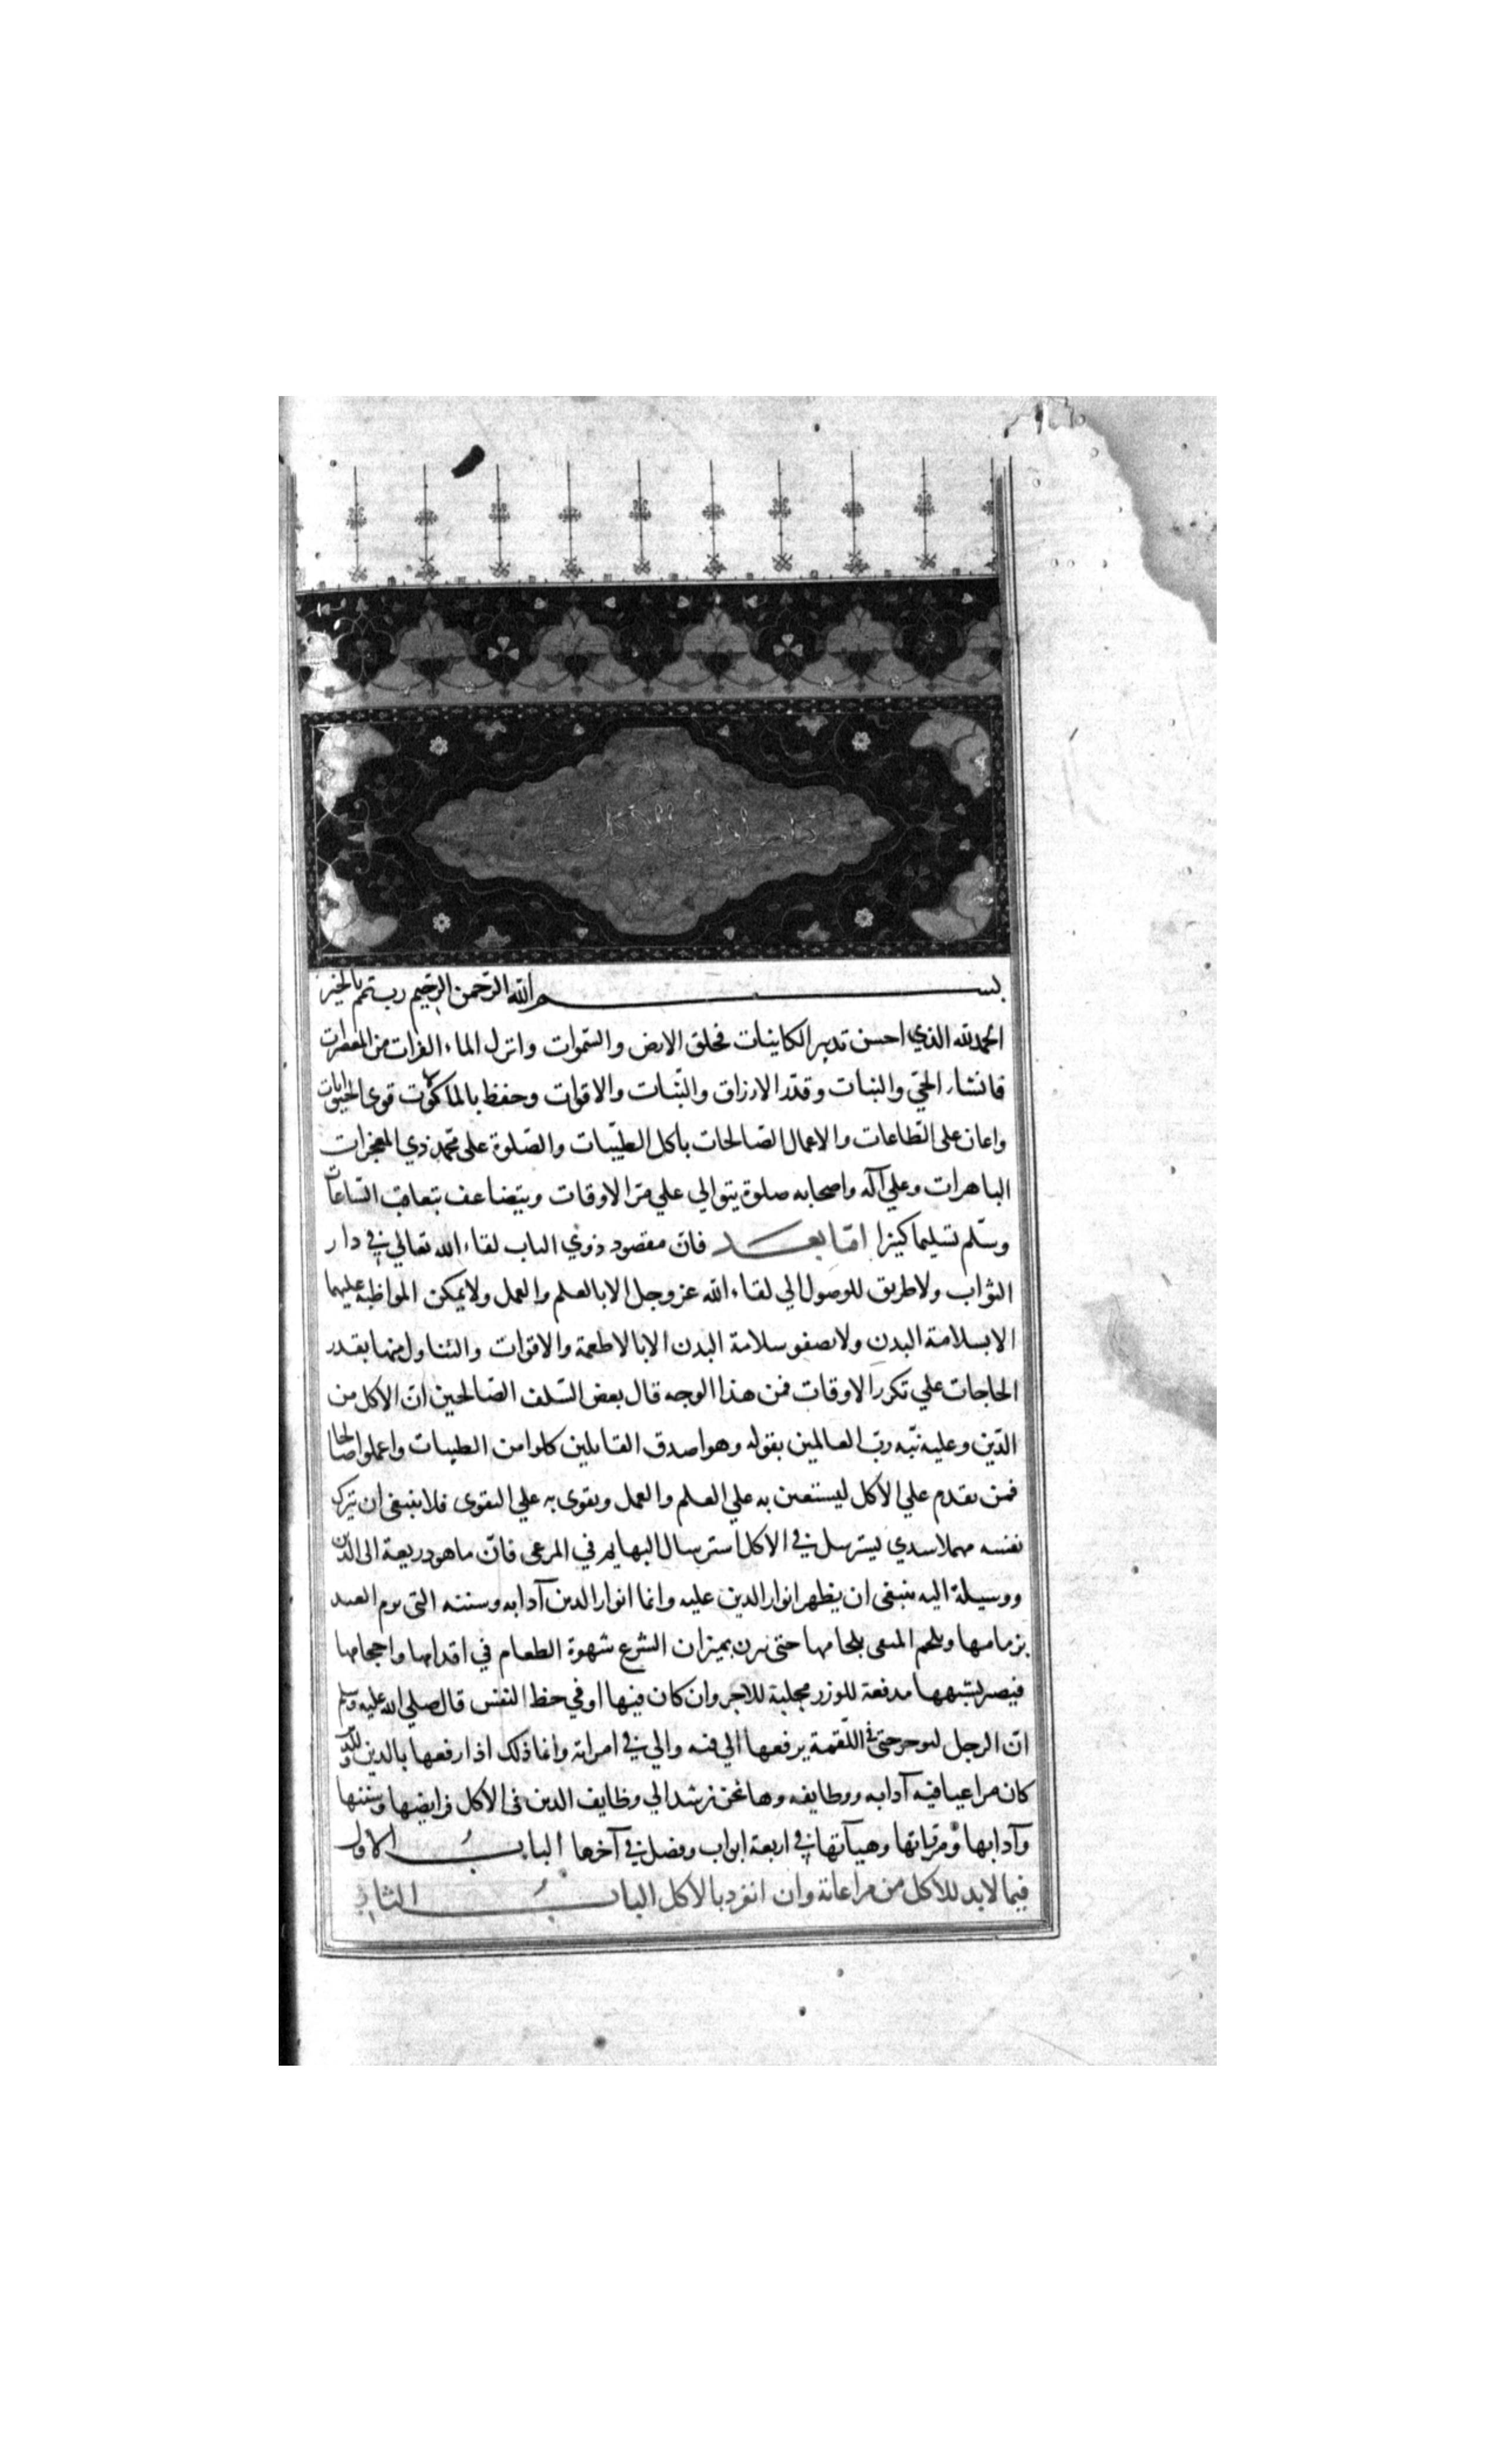 كتاب آداب الاكل
بسم الله الرحمن الرحيم رب تمم بالخير
الحمد لله الذي احسن تدبير الكاينات فخلق الارض والسموات وانزل الماء الفرات من المعصرات
فانشاء الحب والنبات وقدر الارزاق والنبات والاقوات وحفظ بالماكولات قوى الحيوانات
واعان على الطاعات والاعمال الصالحات باكل الطيبات والصلوة على محمد ذي المعجزات
الباهرات وعلي آله واصحابه صلوة يتوالي علي مر الاوقات ويتضاعف بتعاقب الساعات
وسلم تسليما كثيرا اما بعد فان مقصود ذوي الباب لقاء الله تعالي في دار
الثواب ولا طريق للوصول الي لقاء الله عز وجل الا بالعلم والعمل ولا يمكن المواظبة عليهما
الا بسلامة البدن ولا تصفو سلامة البدن الا بالاطعمة والاقوات والتناول منها بقدر
الحاجات علي تكرر الاوقات فمن هذا الوجه قال بعض السلف الصالحين ان الاكل من
الدين وعليه نبه رب العالمين بقوله وهو اصدق القايلين كلوا من الطيبات واعملوا صالحا
فمن يقدم علي الاكل ليستعين به علي العلم والعمل ويقوى به علي التقوى فلا ينبغى ان يترك
نفسه مهملا سدي يسترسل في الاكل استرسال البهايم في المرعى فان ما هو ذريعة الى الدين
ووسيلة اليه ينبغى ان يظهر انوار الدين عليه وانما انوار الدين آدابه وسننه التى يزم العبد
بزمامها ويلجم المتقى بلجامها حتى يزن بميزان الشرع شهوة الطعام في اقدامها واحجامها
فيصير بسببها مدفعة للوزر مجلبة للاجر وان كان فيها اوفي حظ النفس قال صلي الله عليه وسلم
ان الرجل ليوجر حتى في اللقمة يرفعها الي فيه والي في امراته وانما ذلك اذا رفعها بالدين وللدين
كان مراعيا فيه آدابه ووظايفه وها نحن نرشد الي وظايف الدين فى الاكل فرايضها وسننها
وآدابها ومرواتها وهيآتها في اربعة ابواب وفصل في آخرها الباب الاول
فيما لا بد للاكل من مراعاته وان انفرد بالاكل الباب الثاني